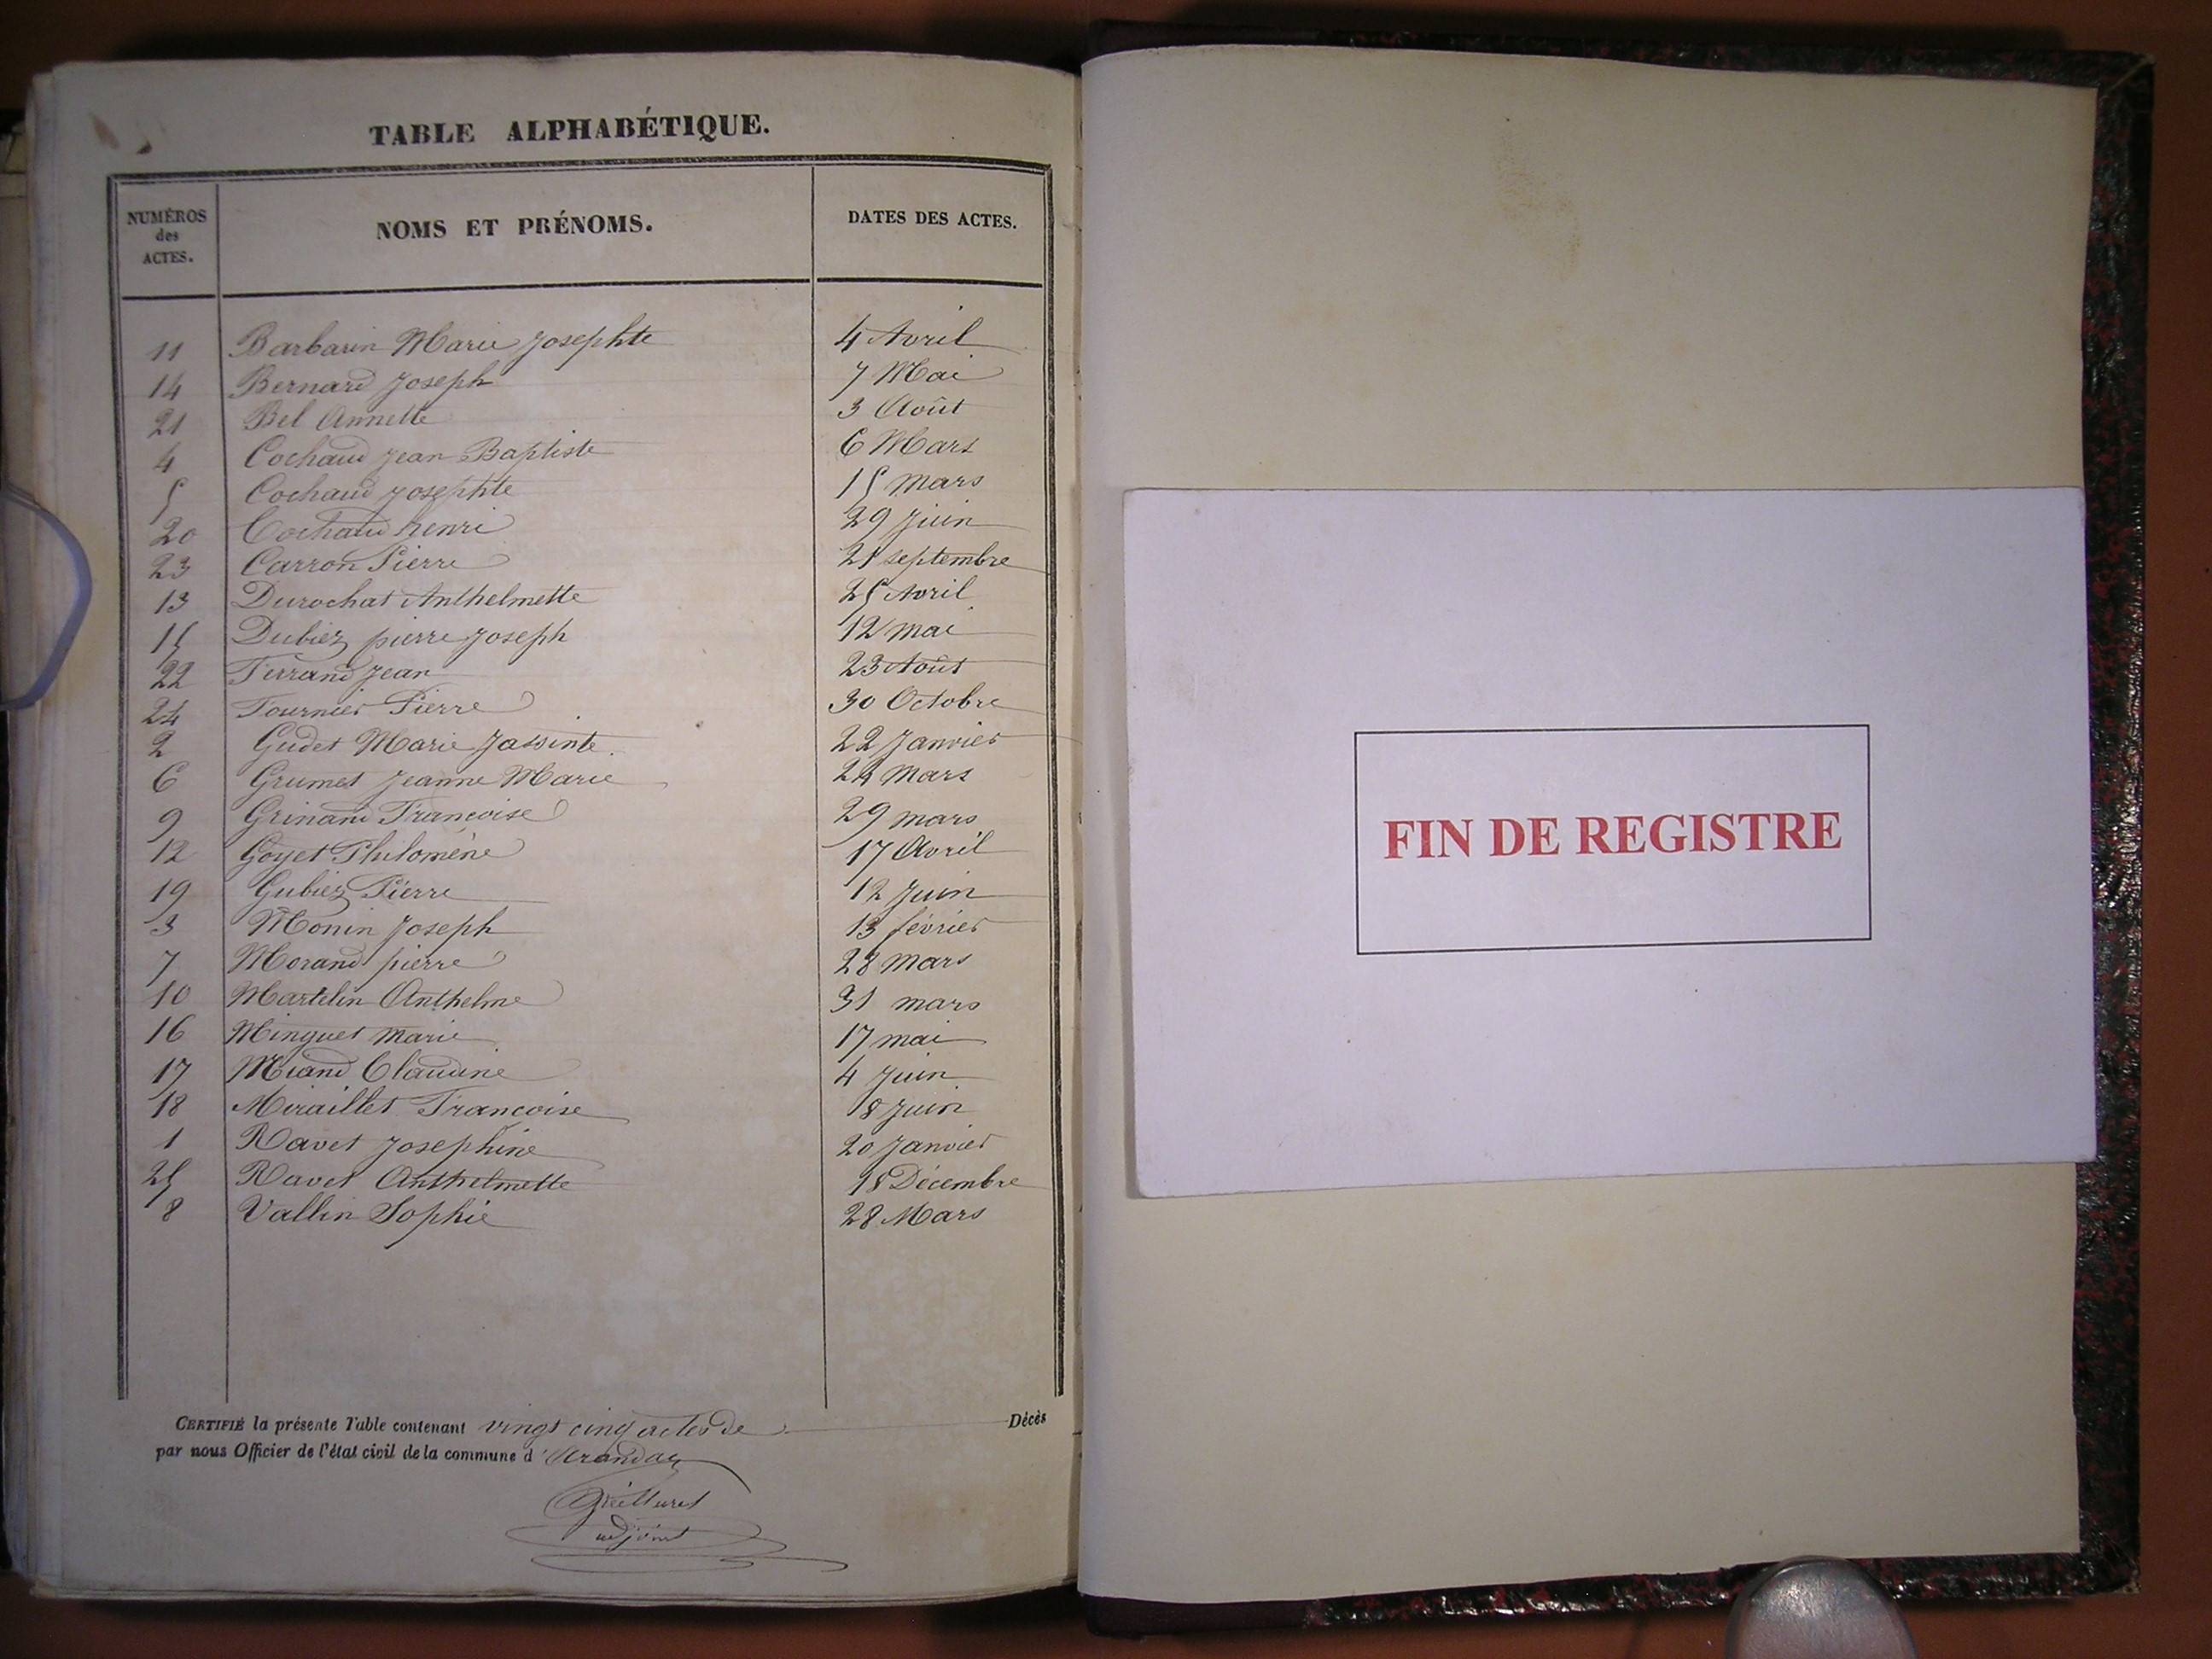 TABLE ALPHABÉTIQUE.
NUMÉROS des ACTES. NOMS ET PRÉNOMS. DATES DES ACTES.
11 Barbarin Marie Josephte 4 Avril
14 Bernard Joseph 7 Mai
21 Bel Annette 3 Août
4 Cochaud Jean Baptiste 6 Mars
5 Cochaud Josephte 15 mars
20 Cochaud henri 29 Juin
23 Carron Pierre septembre
13 Durochat Anthelmette 25 Avril
15 Dubiez pierre Joseph 12 mai
22 Ferrand Jean 23 Août
24 Fournier Pierre 30 Octobre
2 Gudet Marie Jassinte. 22 Janvier
6 Grumet Jeanne Marie 24 Mars
9 Grinand Françoise 29 mars
12 Goyet Philomène 17 Avril
19 Gubiez Pierre 12 Juin
3 Monin Joseph 13 février
7 Morand pierre 28 mars
10 Martelin Anthelme 31 mars
16 Minguet marie 17 mai
17 Miand Claudine 4 Juin
18 Miraillet Francoise 8 Juin
1 Ravet Josephine 20 Janvier
25 Ravet Anthelmette 18 Décembre
8 Vallin Sophie 28 Mars
CERTIFIÉ la présente Table contenant vingt cinq actes de Décès
par nous Officier de l'état civil de la commune d'Arandas
adjoint
FIN DE REGISTRE